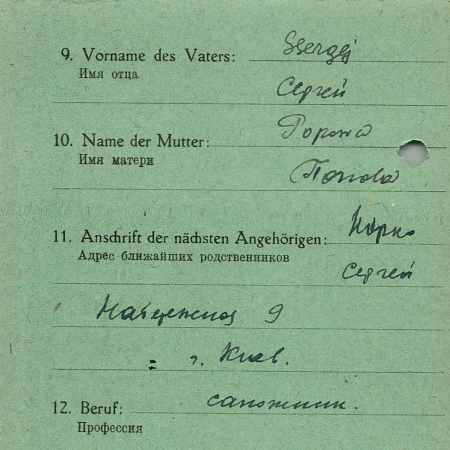 9. Vorname des Vaters: Ssergej
Имя отца
Сергей
10. Name der Mutter: Popowa
Имя матери
Попова
11. Anschrift der nächsten Angehörigen:
Адрес ближайших родственников
Сергей
9
г. Киев.
12. Beruf: сапожник.
Профессия